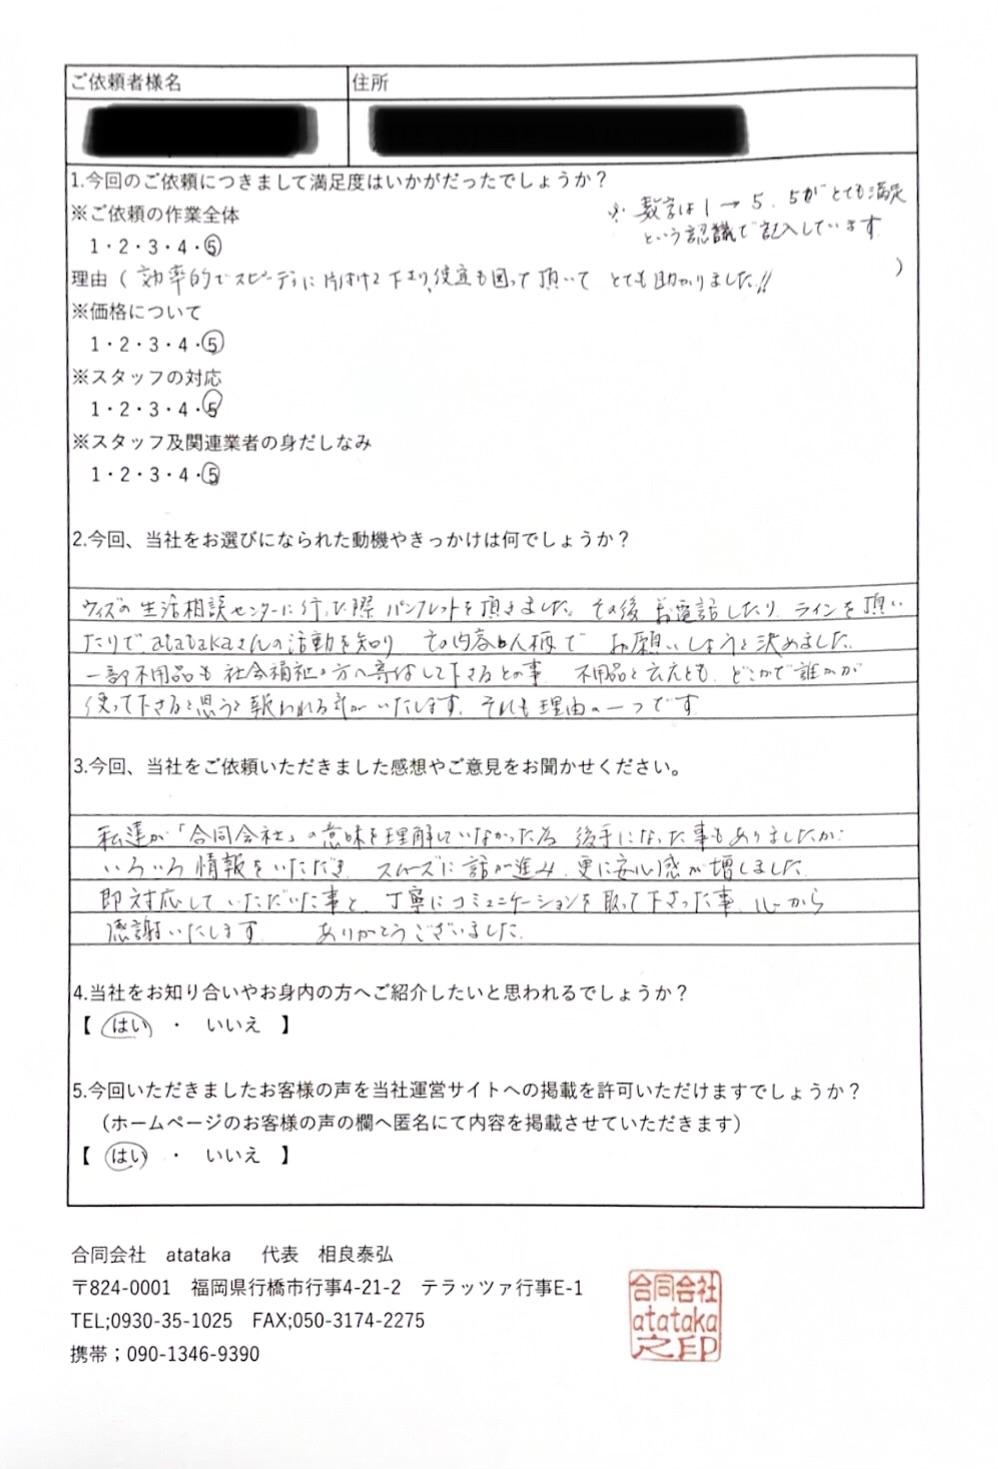 ご依頼者様名 住所
1.今回のご依頼につきまして満足度はいかがだったでしょうか？
※ 数字は1→5. 5がとても満足
という認識で記入しています
※ご依頼の作業全体
1・2・3・4・5
理由（効率的でスピーディに片付けて下さり、便宜も図って頂いて とても助かりました!!）
※価格について
1・2・3・4・5
※スタッフの対応
1・2・3・4・5
※スタッフ及関連業者の身だしなみ
1・2・3・4・5
2.今回、当社をお選びになられた動機やきっかけは何でしょうか？
ウィズの生活相談センターに行った際 パンフレットを頂きました。その後 お電話したり ラインを頂い
たりで、atatakaさんの活動を知り その内容や人柄で お願いしようと決めました。
一部不用品も 社会福祉の方へ寄付して下さるとの事 不用品と云えども、どこかで誰かが
使って下さると思うと報われる気がいたします。それも理由の一つです
3.今回、当社をご依頼いただきました感想やご意見をお聞かせください。
私達が「合同会社」の意味を理解していなかった為 後手になった事もありましたが
いろいろ情報をいただき スムーズに話が進み、更に安心感が増しました
即対応していただいた事と、丁寧にコミュニケーションを取って下さった事、心から
感謝いたします ありがとうございました.
4.当社をお知り合いやお身内の方へご紹介したいと思われるでしょうか？
【 はい ・ いいえ 】
5.今回いただきましたお客様の声を当社運営サイトへの掲載を許可いただけますでしょうか？
（ホームページのお客様の声の欄へ匿名にて内容を掲載させていただきます）
【 はい ・ いいえ 】
合同会社 atataka 代表 相良泰弘
〒824-0001 福岡県行橋市行事4-21-2 テラッツァ行事E-1
TEL;0930-35-1025 FAX;050-3174-2275
携帯；090-1346-9390
合同会社
atataka
之印